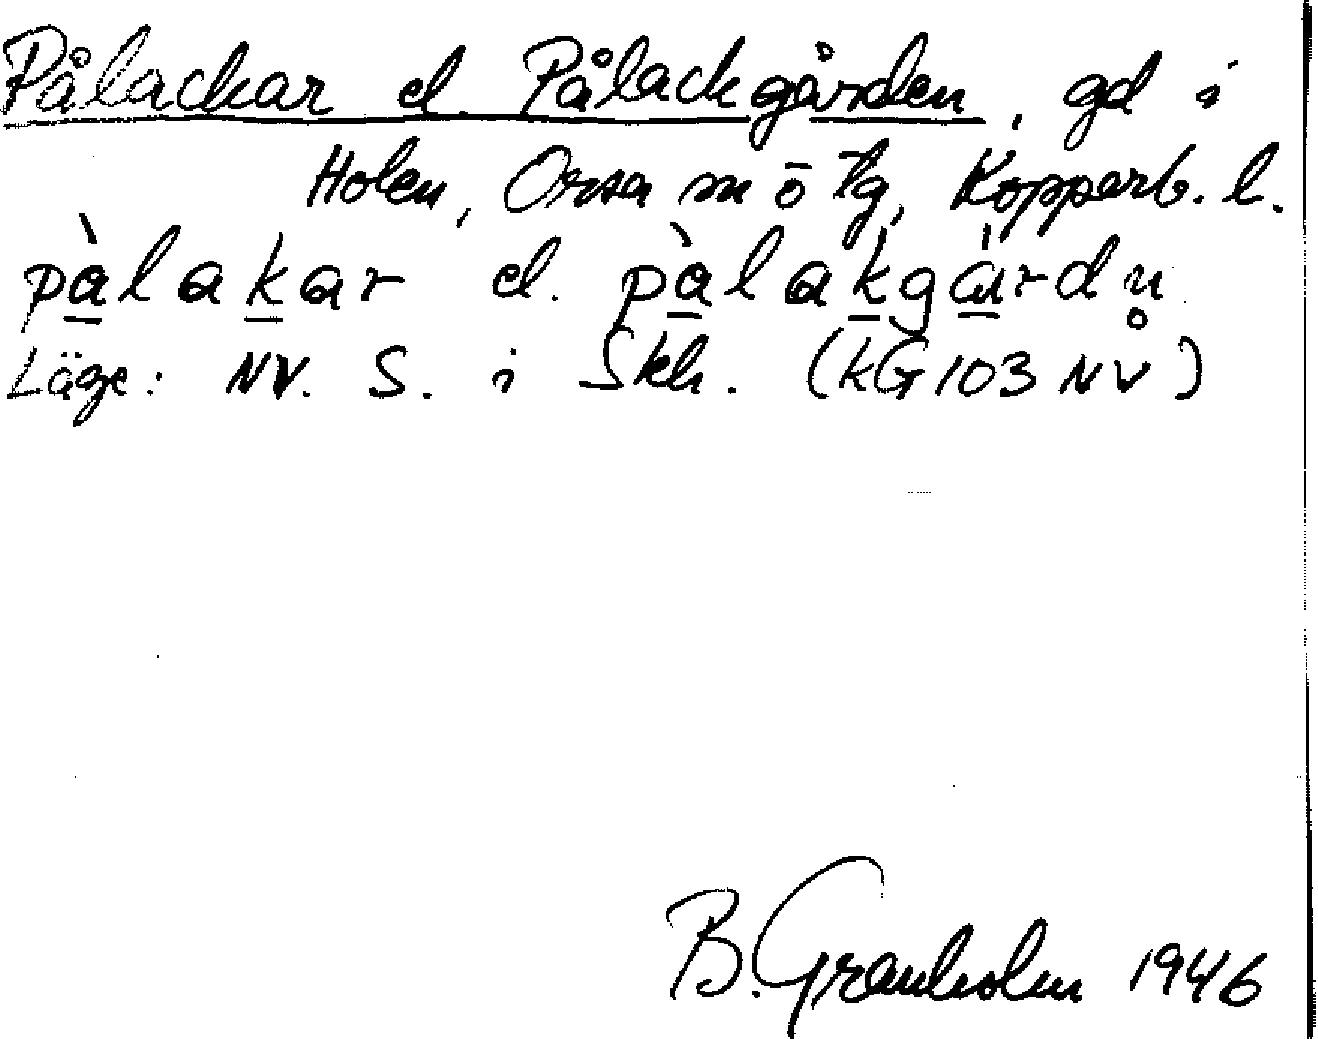 Pålackar el. Pålackgården, gd i
Holen, Orsa sn o tg, Kopparb. l.
pàlakar el. pàlakgàrdn̥
Läge: NV. S. i Skh. (kG 103 NV)
B. Granholm 1946